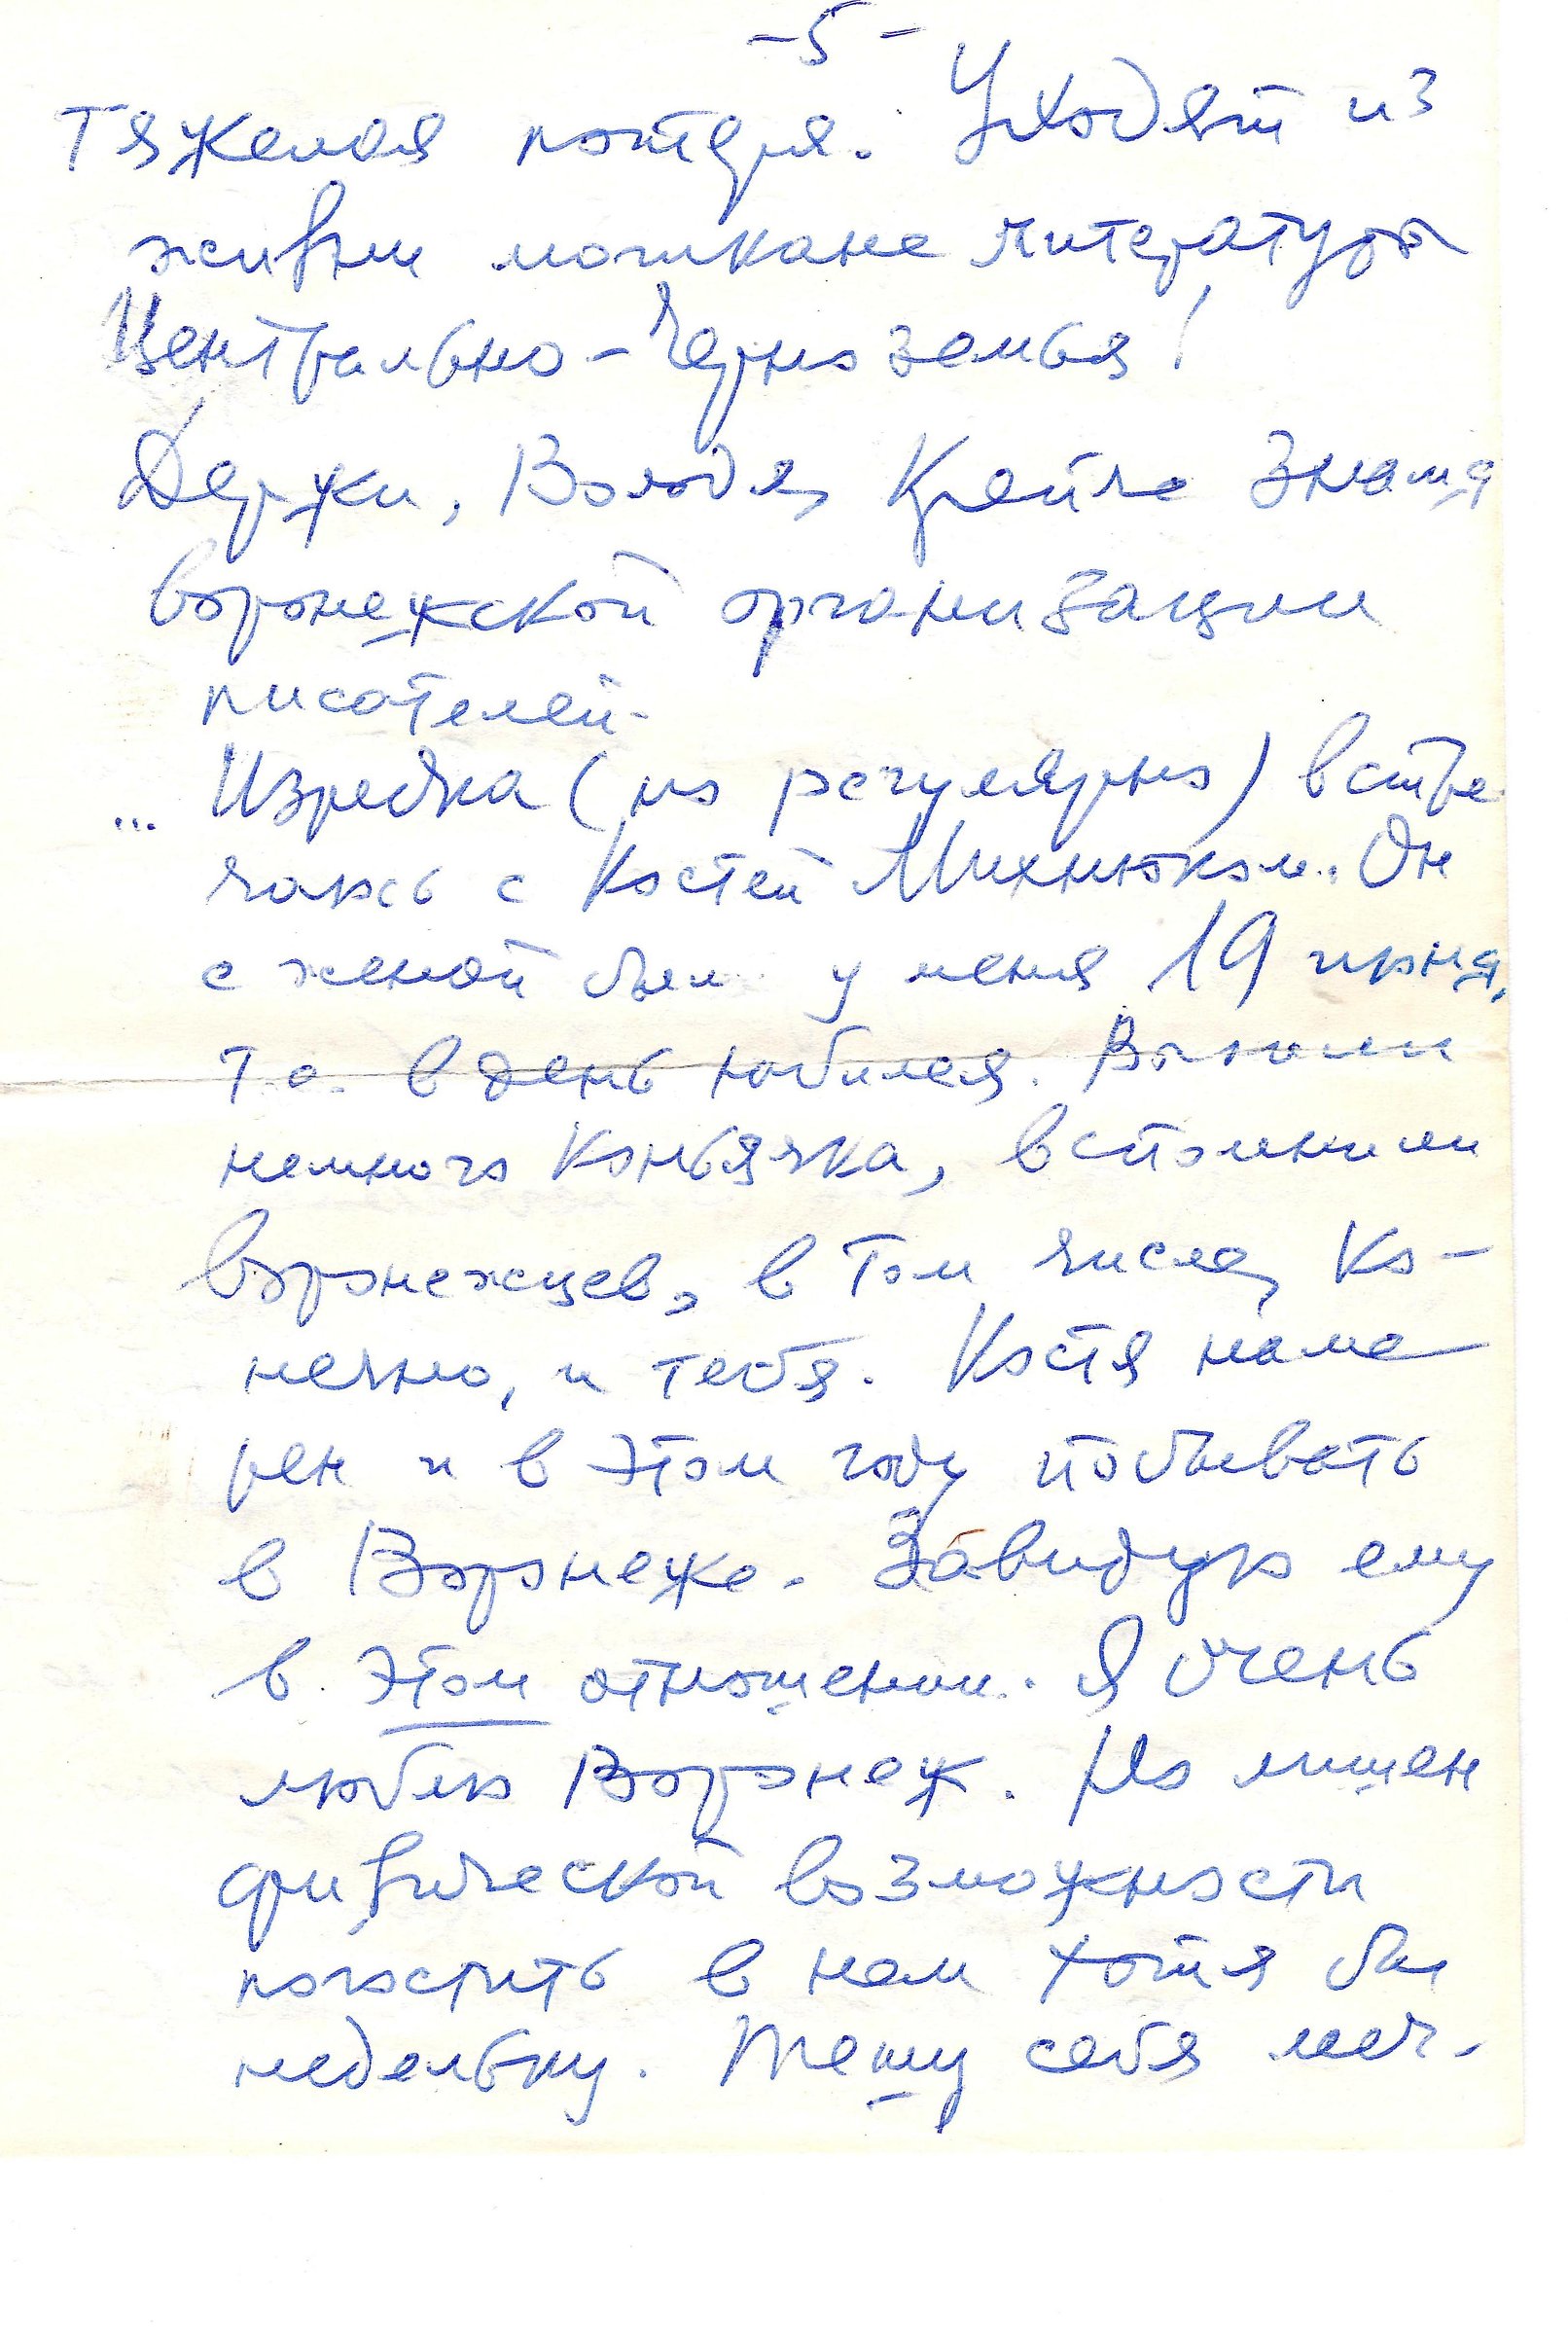 -5-
тяжелая потеря. Уходят из
жизни могикане литературы
Центрально-Черноземья!
Держи, Володя, крепче знамя
воронежской организации
писателей.
... Изредка (но регулярно) встре-
чаюсь с Костей Михнюком. Он
с женой были у меня 19 июня,
т.е. в день юбилея. Выпили
немного коньячка, вспомнили
воронежцев, в том числе, ко-
нечно, и тебя. Костя наме-
рен и в этом году побывать
в Воронеже. Завидую ему
в этом отношении. Я очень
люблю Воронеж. Но лишен
физической возможности
погостить в нем хотя бы
недельку. Тешу себя меч-